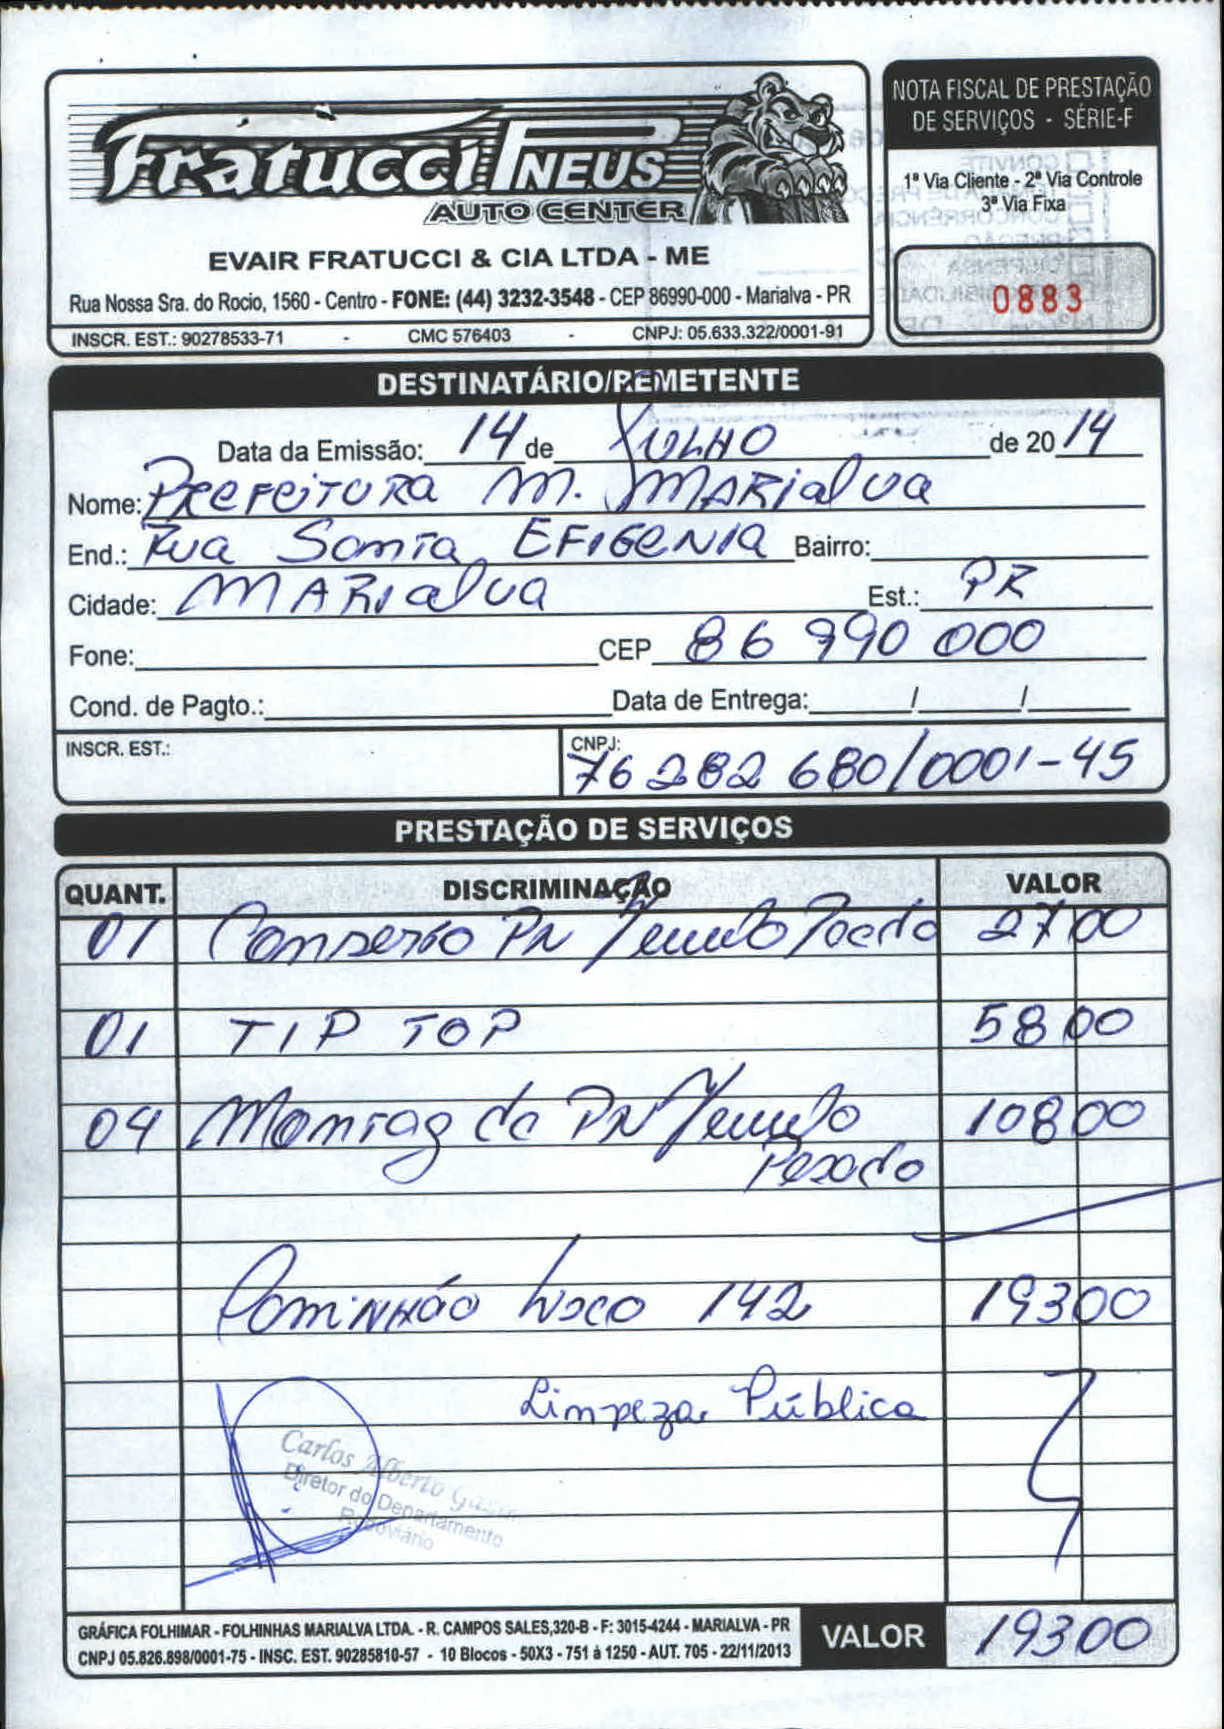 Fratucci PNEUS
AUTO CENTER
EVAIR FRATUCCI & CIA LTDA - ME
Rua Nossa Sra. do Rocio, 1560 - Centro - FONE: (44) 3232-3548 - CEP 86990-000 - Marialva - PR
INSCR. EST.: 90278533-71 - CMC 576403 - CNPJ: 05.633.322/0001-91
NOTA FISCAL DE PRESTAÇÃO
DE SERVIÇOS - SÉRIE-F
1ª Via Cliente - 2ª Via Controle
3ª Via Fixa
0883
DESTINATÁRIO/REMETENTE
Data da Emissão: 14 de JULHO de 2014
Nome: PREFEITURA M. MARIALVA
End.: Rua Santa EFIGENIA Bairro:
Cidade: MARIALVA Est.: PR
Fone: CEP 86 990 000
Cond. de Pagto.: Data de Entrega: / /
INSCR. EST.: CNPJ: 76 282 680/0001-45
PRESTAÇÃO DE SERVIÇOS
QUANT. DISCRIMINAÇÃO VALOR
01 Conserto PN 27 00
01 TIP TOP 58 00
04 Montag de PN 108 00
Pesado
Caminhão 142 193 00
Limpeza Pública
Carlos Alberto
Diretor do Departamento
Rodoviário
GRÁFICA FOLHIMAR - FOLHINHAS MARIALVA LTDA. - R. CAMPOS SALES,320-B - F: 3015-4244 - MARIALVA - PR
CNPJ 05.826.898/0001-75 - INSC. EST. 90285810-57 - 10 Blocos - 50X3 - 751 à 1250 - AUT. 705 - 22/11/2013
VALOR 193 00